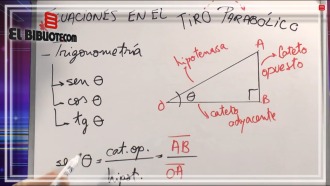 ECUACIONES EN EL TIRO PARABÓLICO
EL BIBLIOTECOM
- Trigonometría
sen θ
cos θ
tg θ
hipotenusa
A
cateto opuesto
O
θ
B
cateto adyacente
θ = cat. op. / hipot. = AB / OA